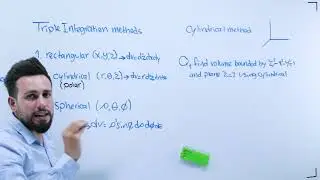 Triple Integration methods
1. rectangular (x,y,z) → dv=dzdydx
cylindrical (r,θ,z) → dv=rdzdrdθ
(polar)
spherical (ρ,θ,ϕ)
dv=ρ²sinϕdρdϕdθ
Cylindrical method
Q, find volume bounded by
and plane z=2 using cylindrical